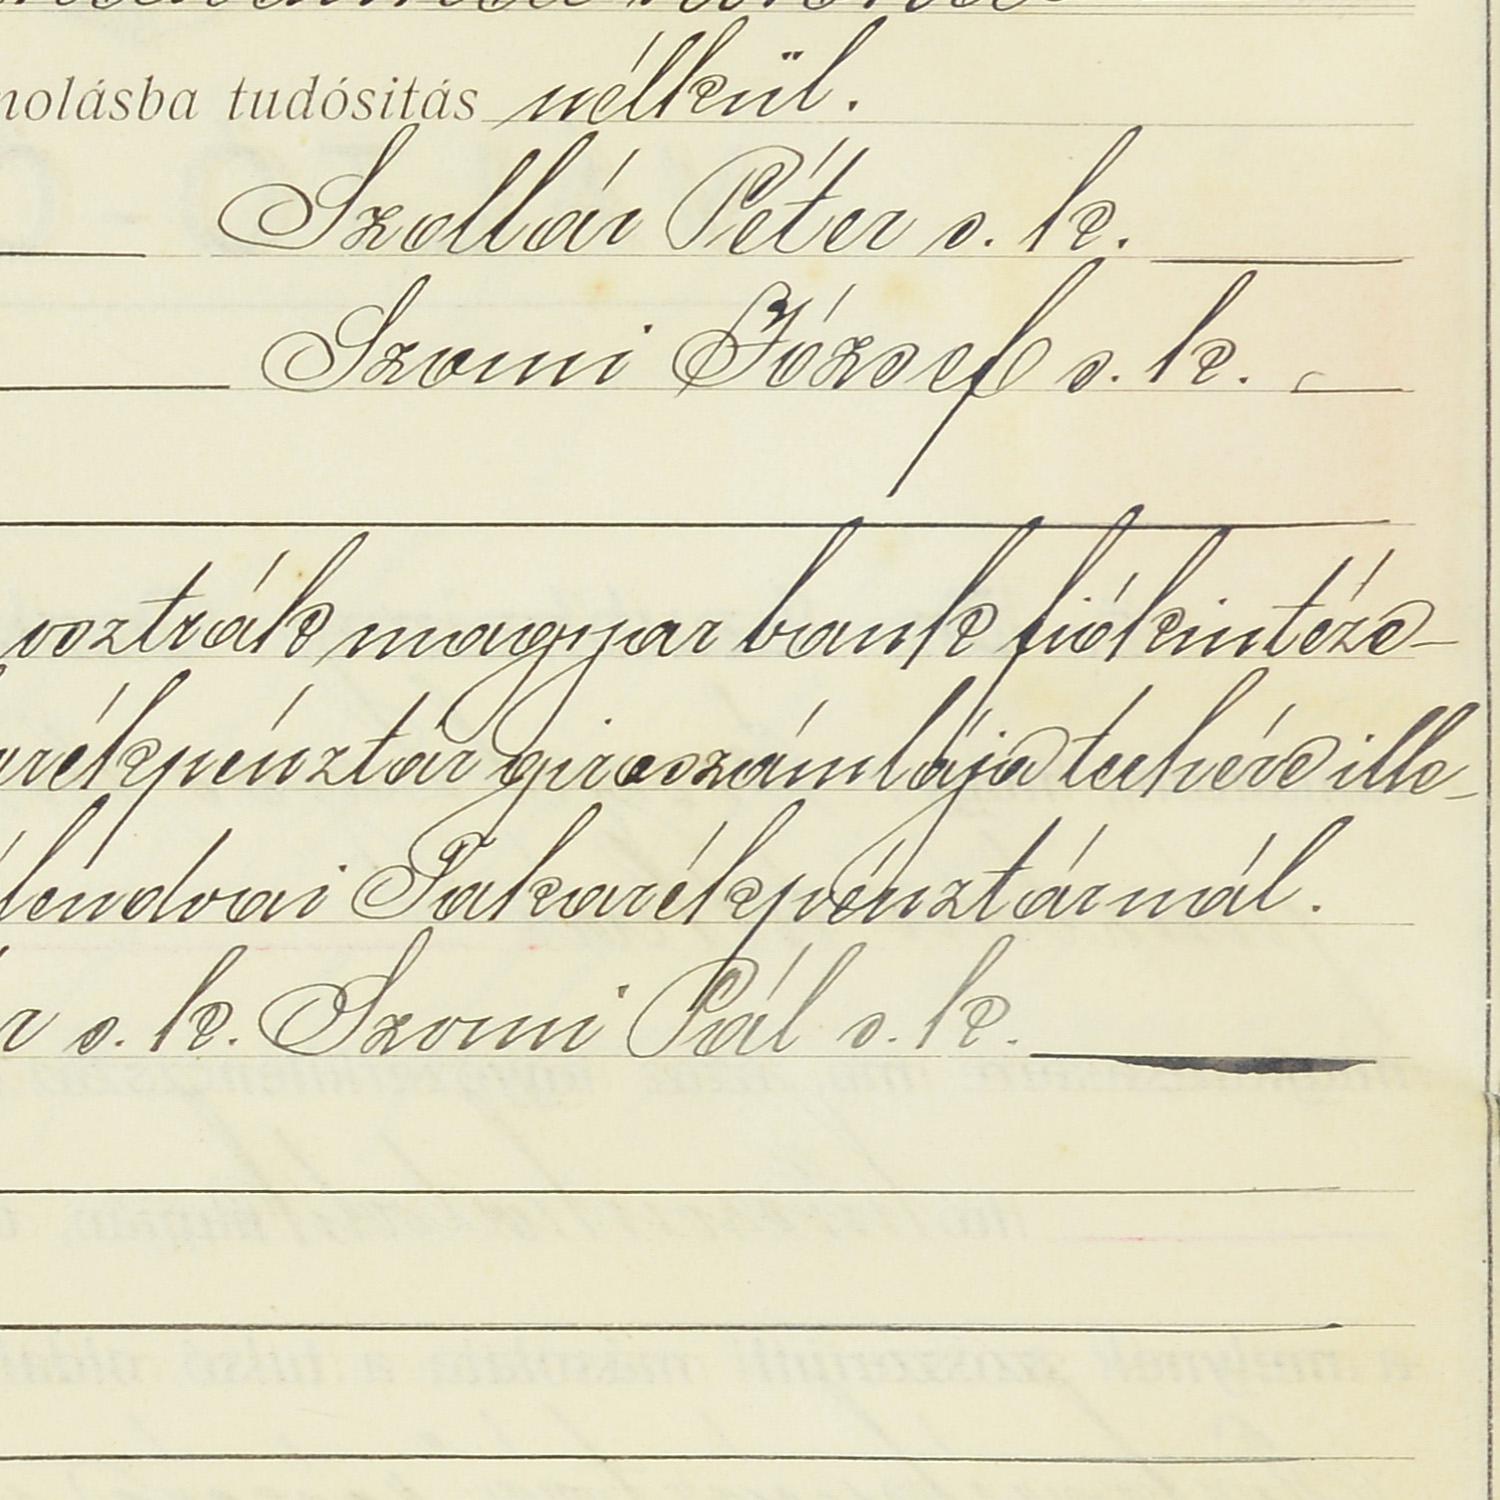 nolásba tudósitás nélkül.
Szollár Péter s. k.
Szomi József s. k.
osztrák magyar bank fiókintéze-
arékpénztár giroszámlája terhére ille-
lendvai Takarékpénztárnál.
r s. k. Szomi Pál s. k.